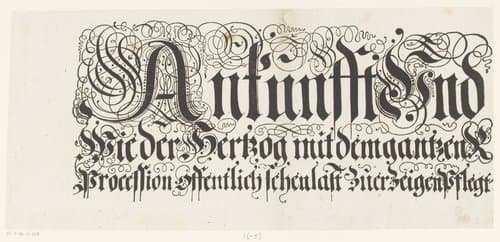 Ankunfft Und
Wie der Hertzog mit dem gantzen R
Procession offentlich sehen last Zuerzeigen Pflegt